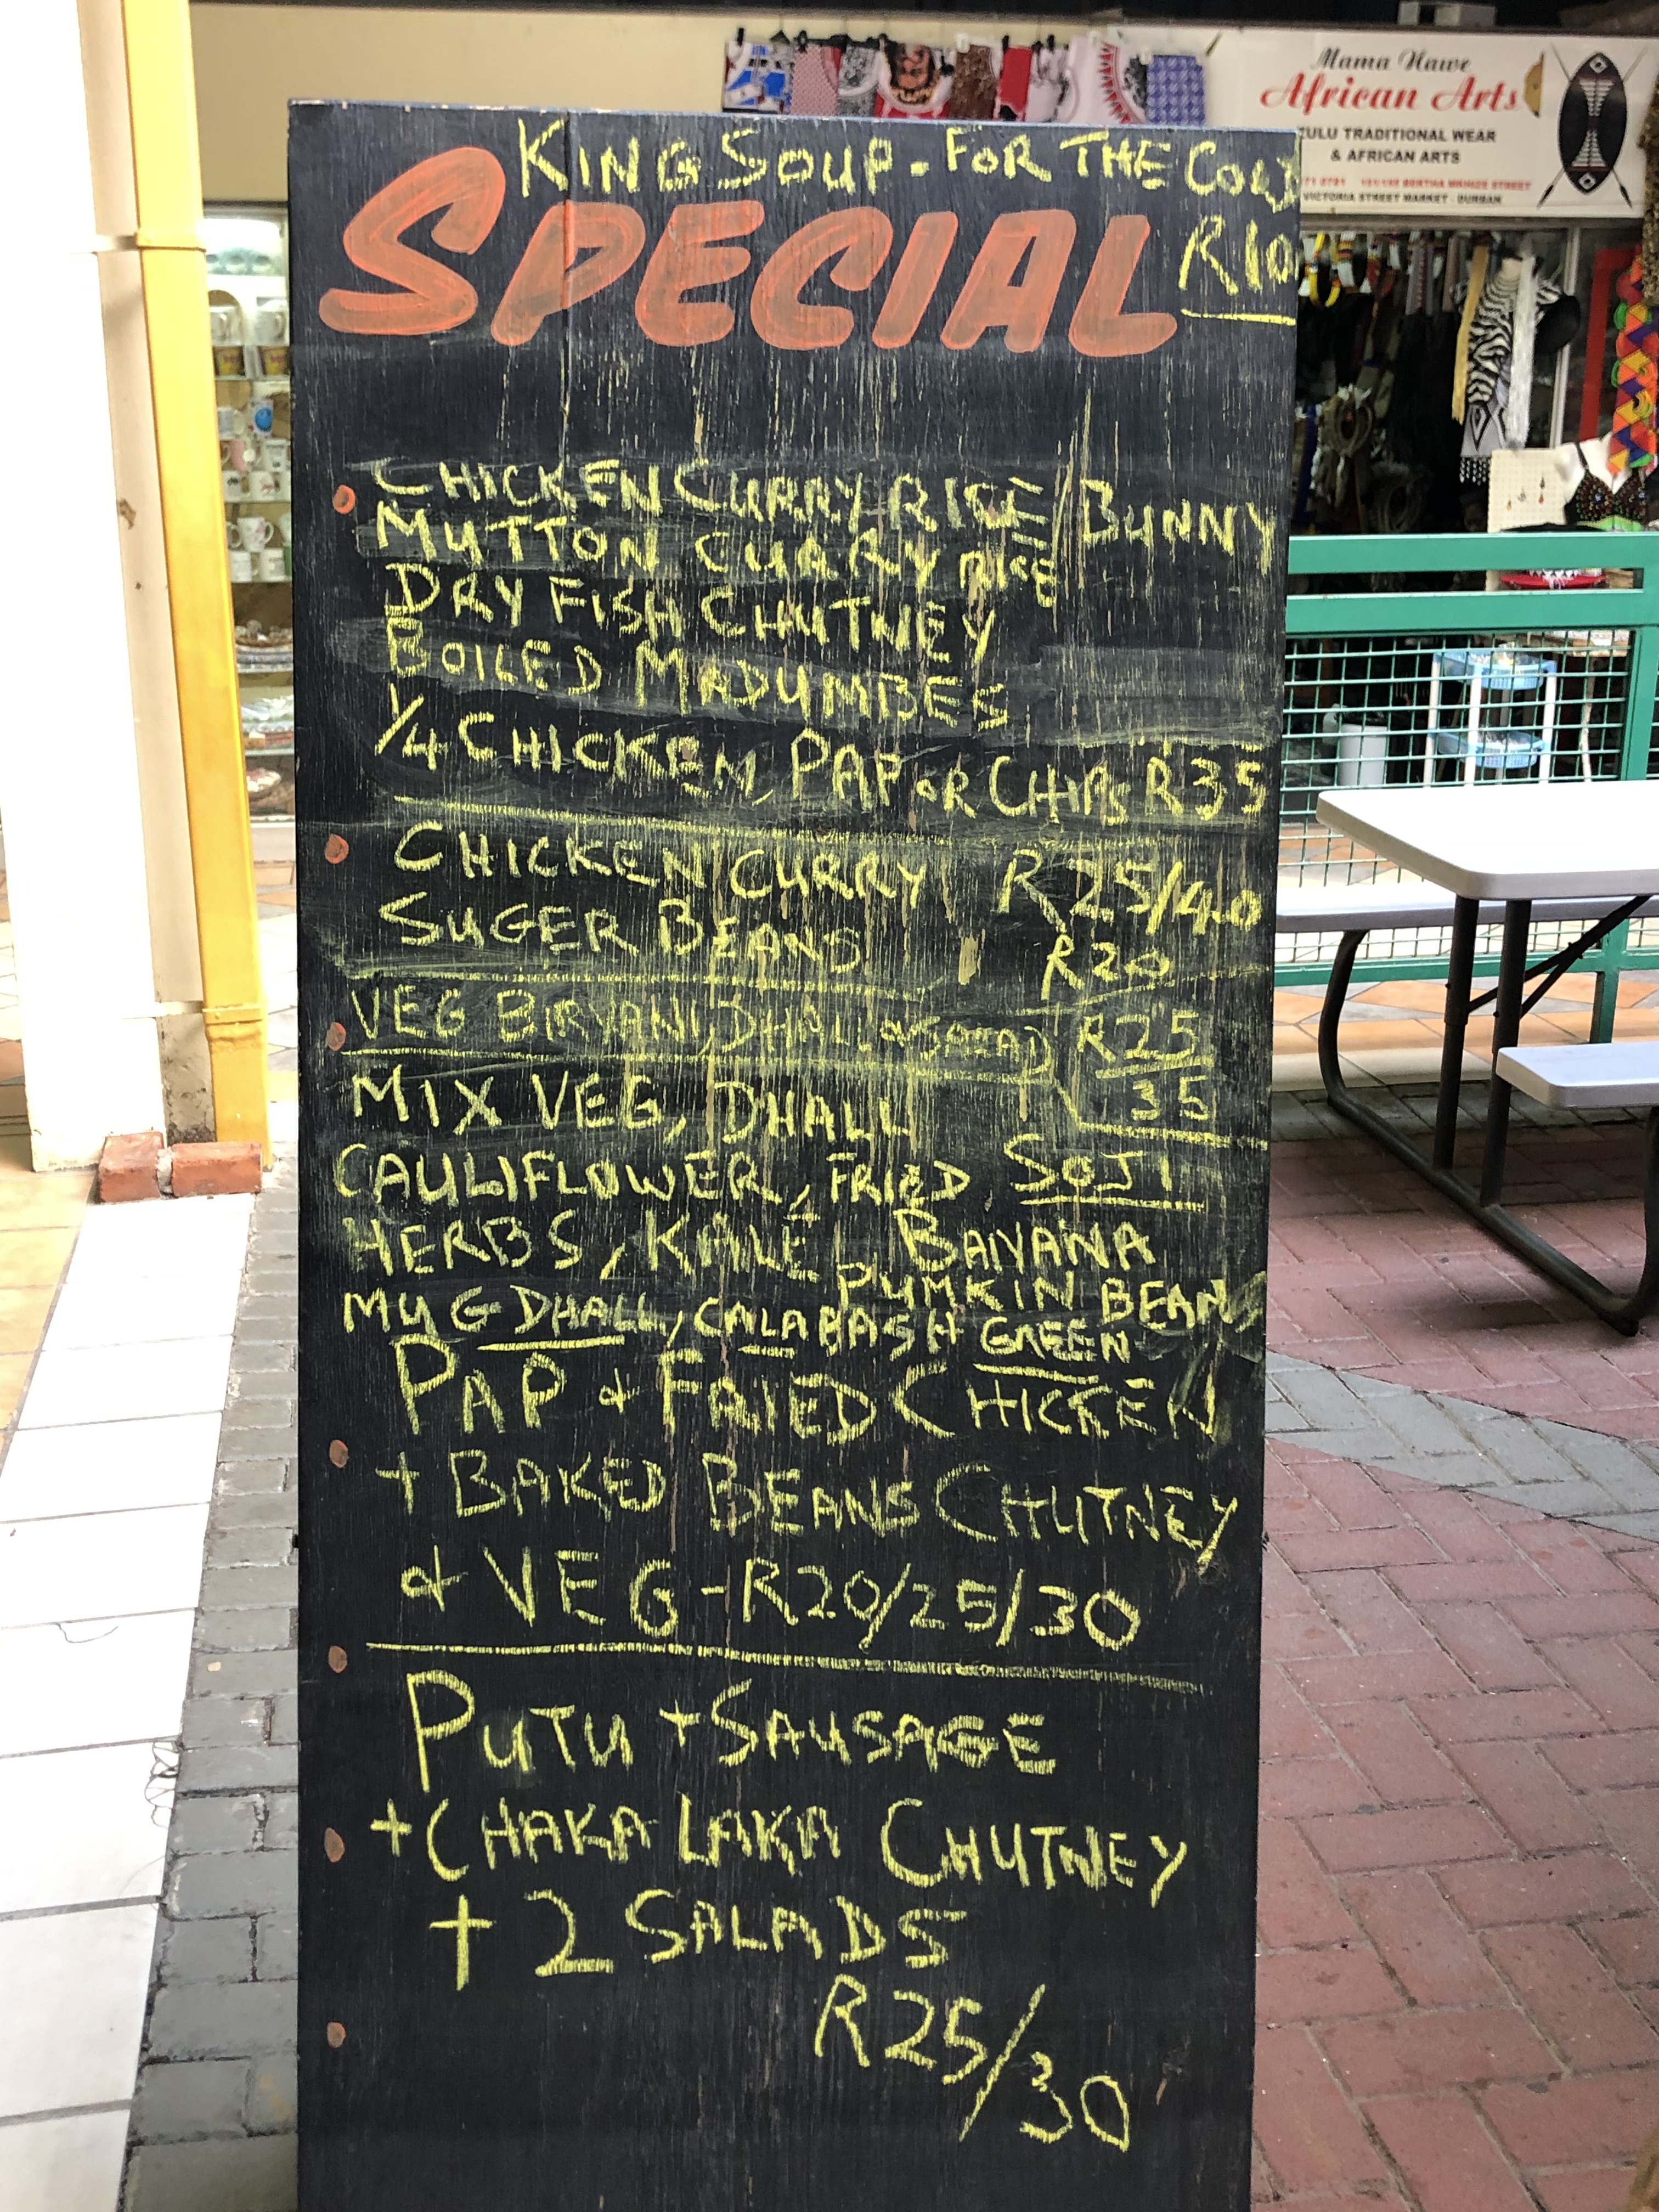 KING SOUP. FOR THE COLD
SPECIAL
R10
CHICKEN CURRY RICE/BUNNY
MUTTON CURRY RICE
DRY FISH CHUTNEY
BOILED MADUMBES
1/4 CHICKEN, PAP OR CHIPS R35
CHICKEN CURRY R25/40
SUGER BEANS R20
VEG BIRYANI, DHALL & SALAD R25
MIX VEG, DHALL 35
CAULIFLOWER, FRIED SOJI
HERBS, KALE BAIYANA
PUMKIN BEAN
MUG DHALL, CALABASH GREEN
PAP & FRIED CHICKEN
+ BAKED BEANS CHUTNEY
& VEG - R20/25/30
PUTU + SAUSAGE
+ CHAKA LAKA CHUTNEY
+ 2 SALADS
R25/30
Mama Nawe
African Arts
ZULU TRADITIONAL WEAR
& AFRICAN ARTS
BERTHA MKHIZE STREET
VICTORIA STREET MARKET - DURBAN